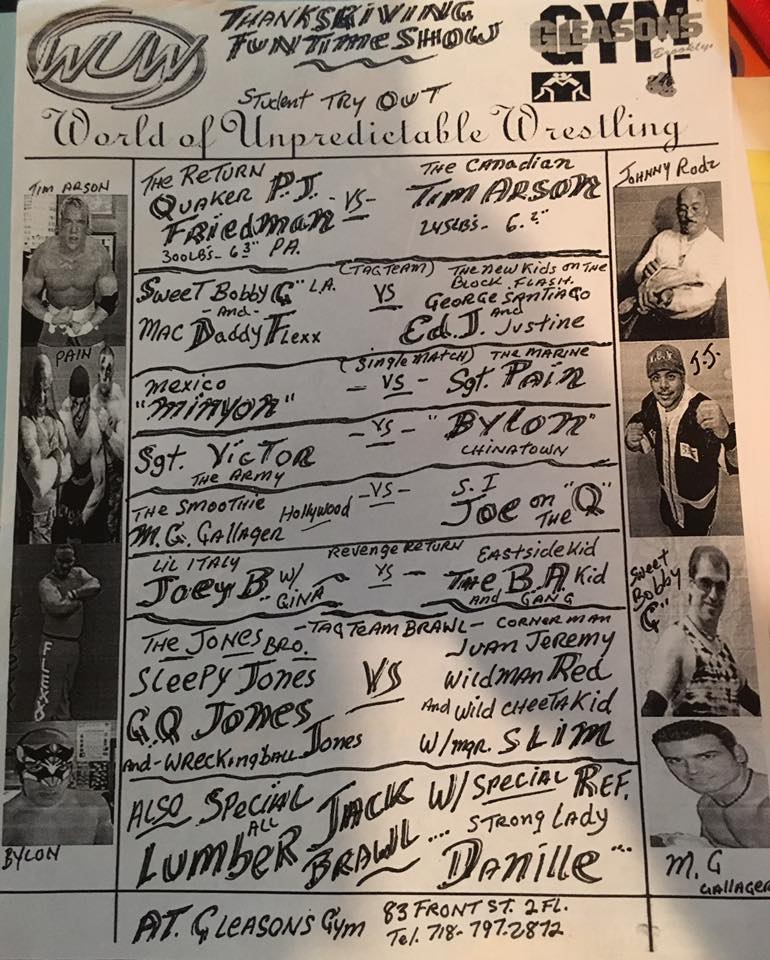 WUW
THANKSGIVING
FUNTIME SHOW
GYM
GLEASON'S
Brooklyn
Student TRY OUT
World of Unpredictable Wrestling
TIM ARSON
PAIN
FLEXX
BYLON
THE RETURN
QUAKER P.J.
FRIEDMAN
300LBS- 6.3" PA.
-VS-
THE CANADIAN
TIM ARSON
245LB'S- 6.2"
(TAG TEAM)
SWEET BOBBY "C" L.A.
-and-
MAC DADDY FLEXX
VS
THE NEW KIDS ON THE
BLOCK. FLASH.
GEORGE SANTIAGO
and
Ed.J. Justine
(SINGLE MATCH)
MEXICO
"MINYON"
-VS-
THE MARINE
Sgt. PAIN
Sgt. VICTOR
THE ARMY
-VS-
"BYLON"
CHINATOWN
THE SMOOTHIE
M.G. GALLAGER Hollywood
-VS-
S.I
JOE on THE "Q"
Revenge RETURN
LIL ITALY
Joey B. W/
"GINA"
VS -
EASTSIDE KID
THE B.A Kid
AND GANG
-TAG TEAM BRAWL-
THE JONES BRO.
SLEEPY JONES
G.Q JONES
AND-WRECKINGBALL JONES
VS
CORNER MAN
JUAN JEREMY
WILDMAN RED
And WILD CHEETAKID
W/MQR. SLIM
ALSO SPECIAL
ALL
LUMBER JACK
BRAWL ....
W/SPECIAL REF.
STRONG LADY
DANILLE"...
JOHNNY RODZ
J.J.
SWEET
BOBBY
"C"
M.G
GALLAGER
AT. GLEASON'S GYM 83 FRONT ST. 2 FL.
Tel. 718-797-2872